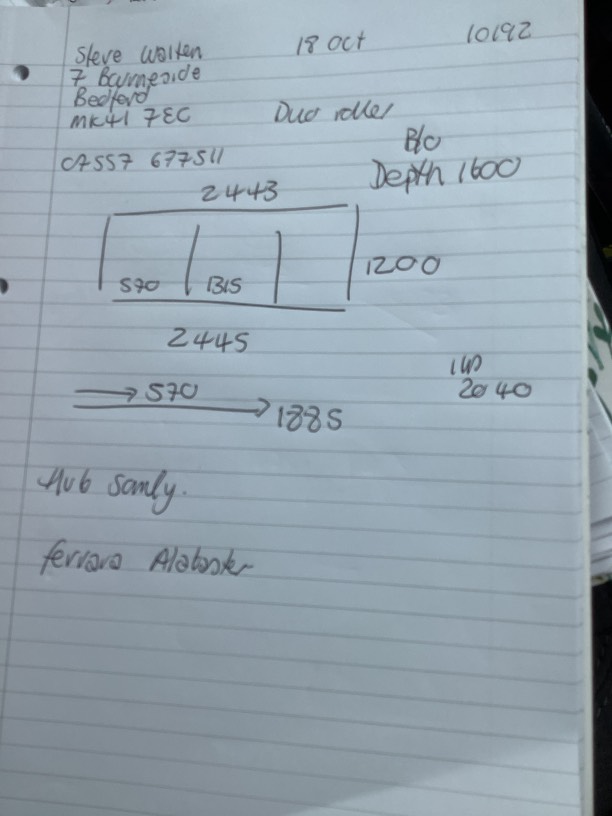 Steve Walten 18 Oct 10192
7 Barneside
Bedford
MK41 7EC Duo roller
B/O
07557 677511 Depth 1600
2443
570 1315 1200
2445
570 2040
1885
Hub
Ferrara Alabaster